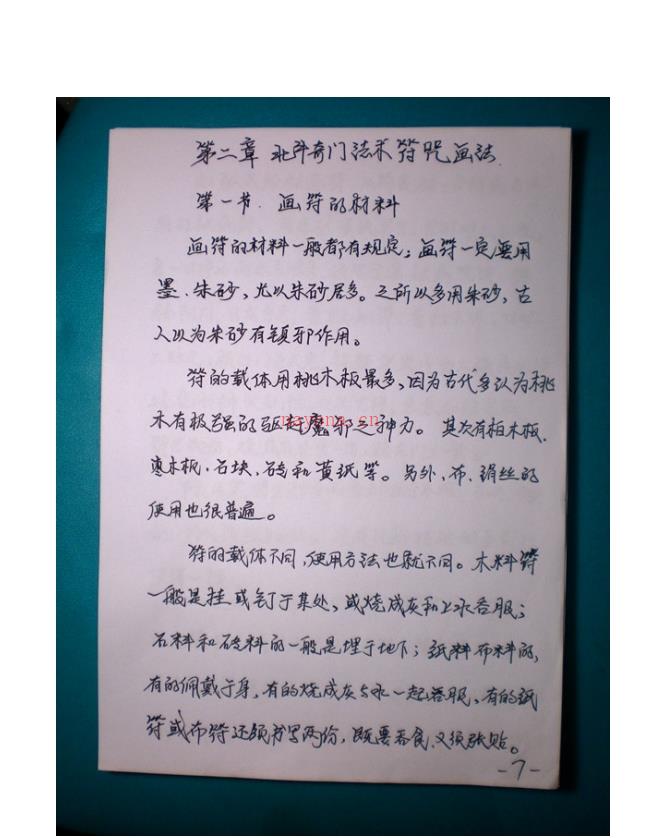 第二章 北斗奇门法术符咒画法
第一节. 画符的材料
画符的材料一般都有规定;画符一定要用
墨、朱砂,尤以朱砂居多。之所以多用朱砂,古
人以为朱砂有镇邪作用。
符的载体用桃木板最多,因为古代多认为桃
木有极强的驱赶魔邪之神力。其次有柏木板、
枣木板、石块、砖和黄纸等。另外,布、绢丝的
nayona.cn
使用也很普遍。
符的载体不同,使用方法也就不同。木料符
一般是挂或钉于某处,或烧成灰和上水吞服;
石料和砖料的一般是埋于地下;纸料布料的,
有的佩戴于身,有的烧成灰与水一起吞服,有的纸
符或布符还须书写两份,既要吞食,又须张贴。
-7-